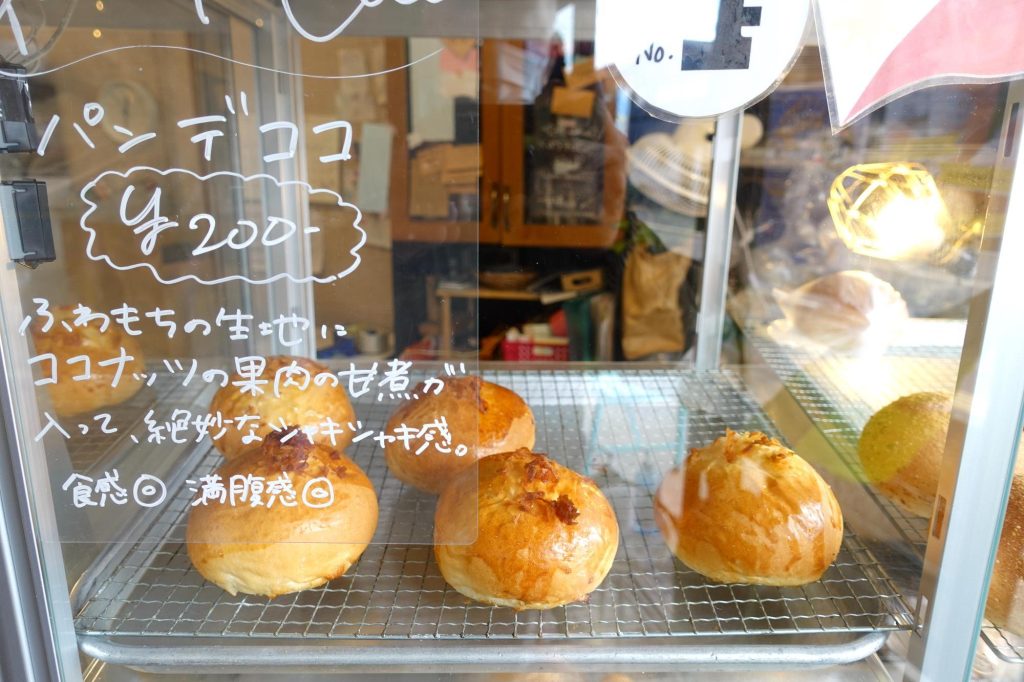 パンデココ
¥200-
ふわもちの生地に
ココナッツの果肉の甘煮が
入って、絶妙なシャキシャキ感。
食感◎ 満腹感◎
No.